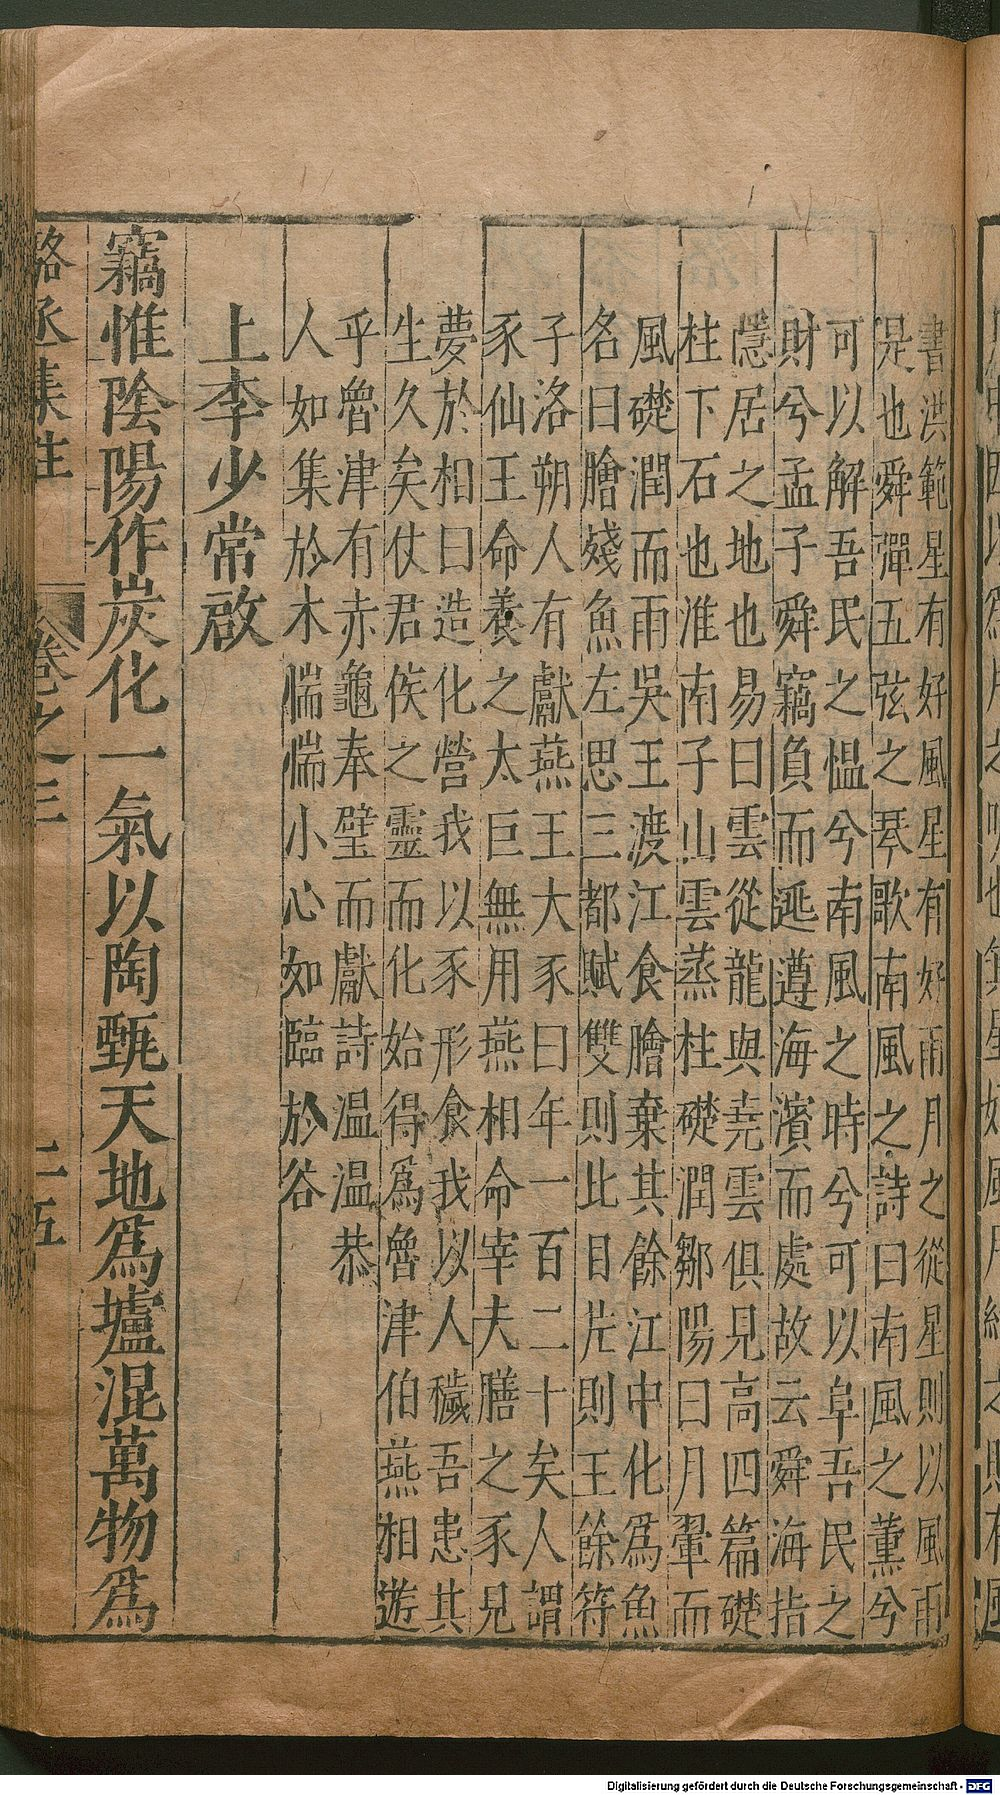 書洪範星有好風星有好雨月之從星則以風雨
是也舜彈五弦之琴歌南風之詩曰南風之薰兮
可以解吾民之愠兮南風之時兮可以阜吾民之
財兮孟子舜竊負而逃遵海濱而處故云舜海指
隱居之地也易曰雲從龍與堯雲俱見高四篇礎
柱下石也淮南子山雲蒸柱礎潤鄒陽曰月暈而
風礎潤而雨吳王渡江食膾棄其餘江中化爲魚
名曰膾殘魚左思三都賦雙則比目片則王餘符
子洛朔人有獻燕王大豕曰年一百二十矣人謂
豕仙王命養之太巨無用燕相命宰夫膳之豕見
夢於相曰造化營我以豕形食我以人穢吾患其
生久矣仗君侯之靈而化始得爲魯津伯燕相遊
乎魯津有赤龜奉璧而獻詩温温恭
人如集於木惴惴小心如臨於谷
上李少常啟
竊惟陰陽作炭化一氣以陶甄天地爲壚混萬物爲
駱丞集註
卷之三
二五
Digitalisierung gefördert durch die Deutsche Forschungsgemeinschaft - DFG